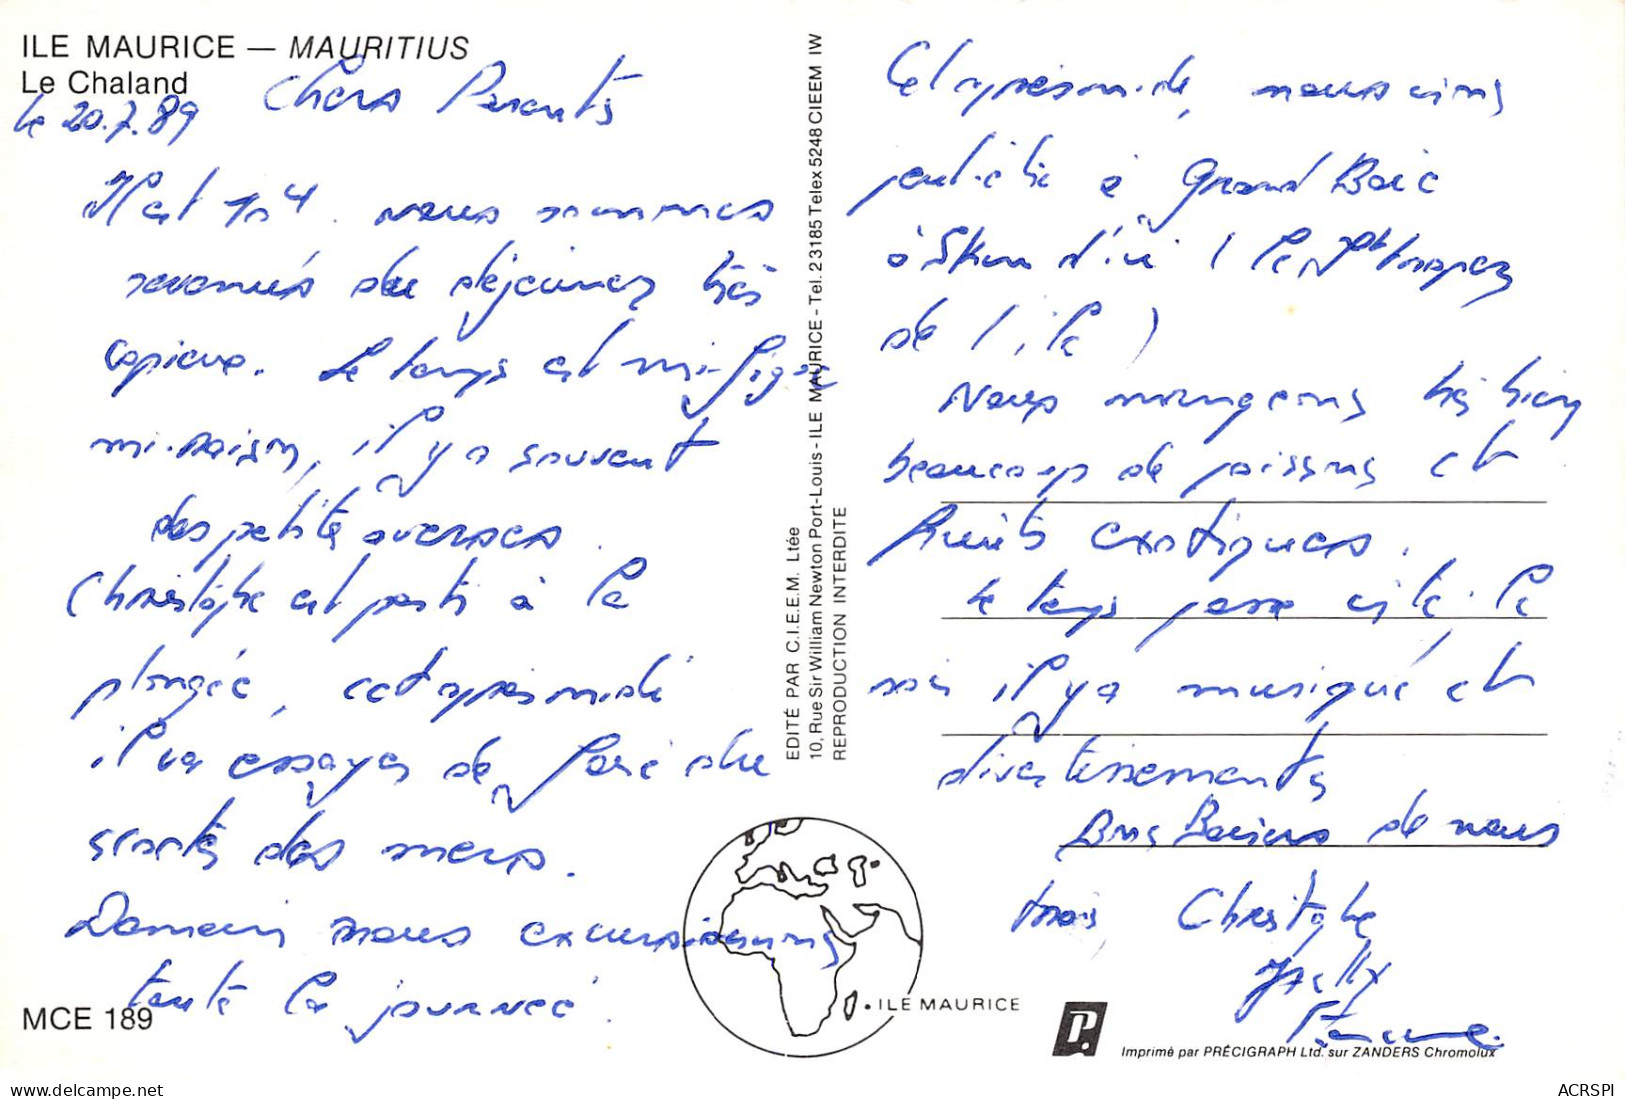 ILE MAURICE — MAURITIUS
Le Chaland
Le 20.7.89
Chers Parents
Il est 14 H. nous sommes
revenus du déjeuner très
copieux. Le temps est mi-figue
mi-raison, il y a souvent
des petites averses.
Christophe est parti à la
plongée, cet après midi
il va essayer de faire du
scooter des mers.
Demain nous excursionnons
toute la journée.
MCE 189
EDITÉ PAR C.I.E.E.M. Ltée
10, Rue Sir William Newton Port-Louis - ILE MAURICE - Tel. 23185 Telex 5248 CIEEM IW
REPRODUCTION INTERDITE
Cet après midi, nous irons
peut-être à Grand Baie
à 5 km d'ici (le St tropez
de l'ile)
Nous mangeons très bien
beaucoup de poissons et
fruits exotiques.
Le temps passe vite. le
soir il y a musique et
divertissements
Bons Baisers de nous
trois, Christophe
ILE MAURICE
P.
Imprimé par PRÉCIGRAPH Ltd. sur ZANDERS Chromolux
ACRSPI